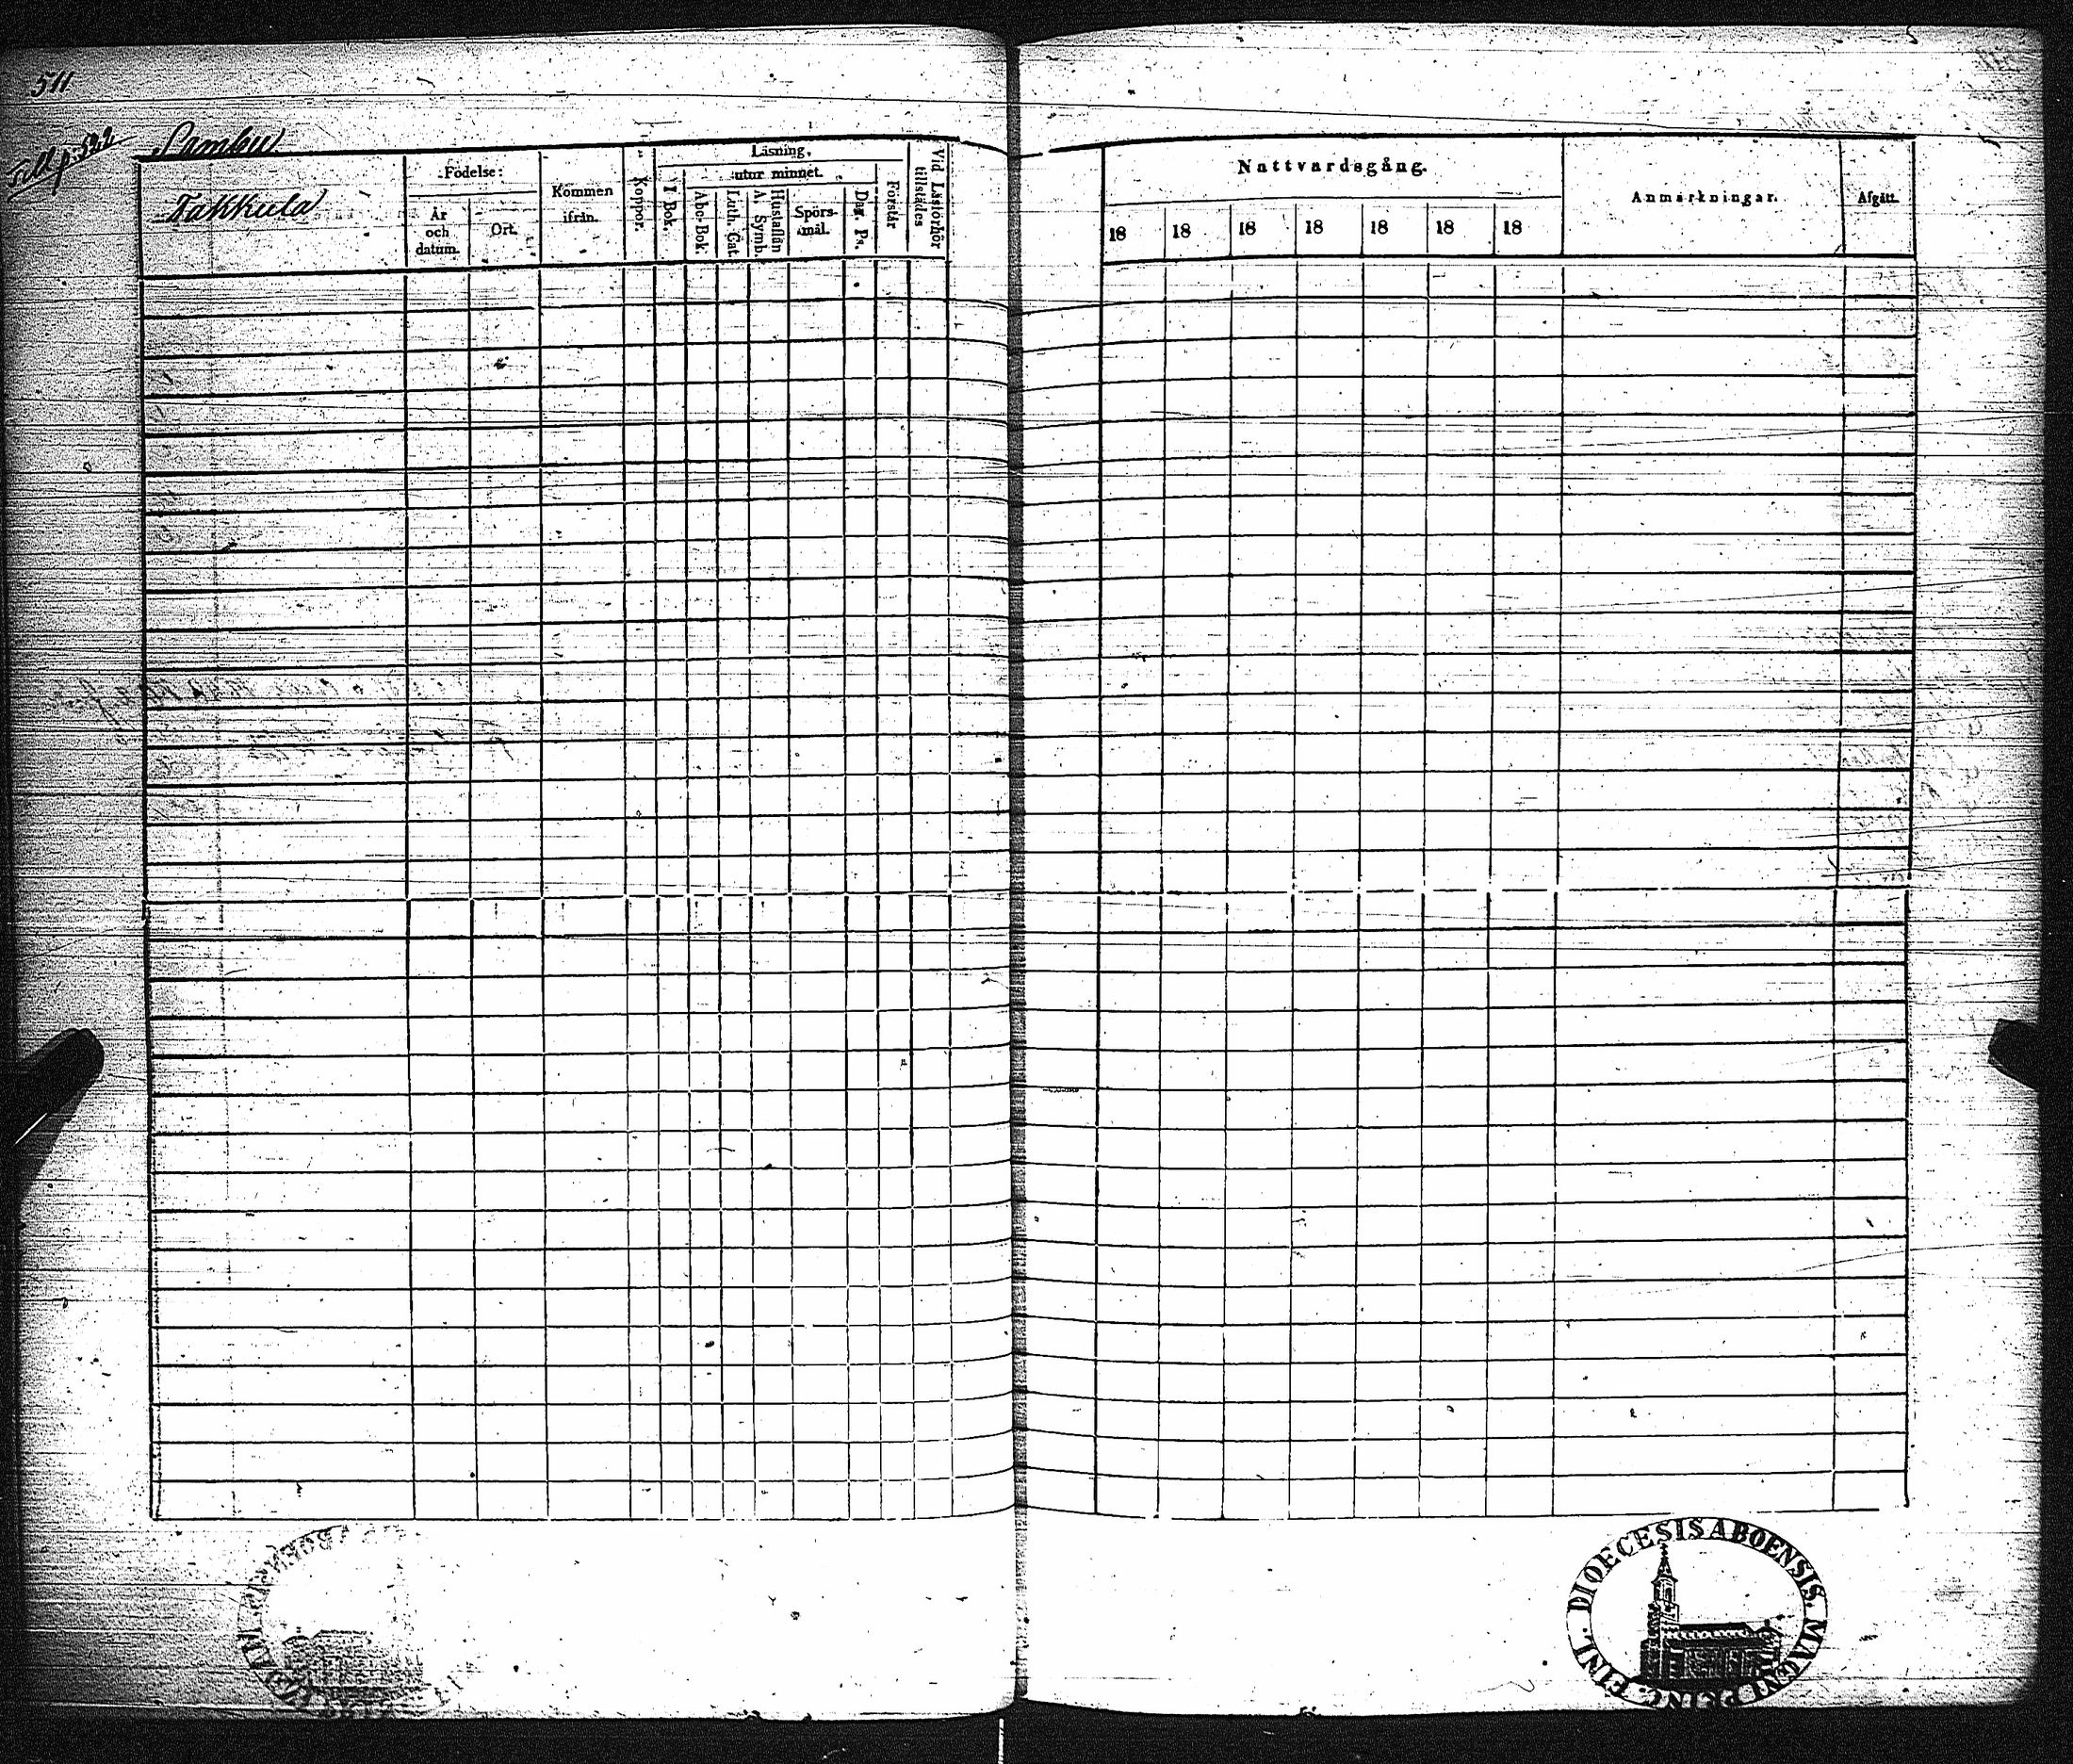 511
Till p. 522
Sambu
Takkula
Födelse:
År och datum.
Ort.
Kommen ifrån.
Koppor.
Läsning.
utur minnet.
I Bok.
Abc-Bok.
Luth. Cat.
Hustaflan A. Symb.
Spörs-mål.
Dav. Ps.
Förstår
Vid Läsförhör tillstädes
Nattvardsgång.
18 18 18 18 18 18 18
Anmärkningar.
Afgått.
DIOECESIS ABOENSIS. MAGNI PRINC. FINL.